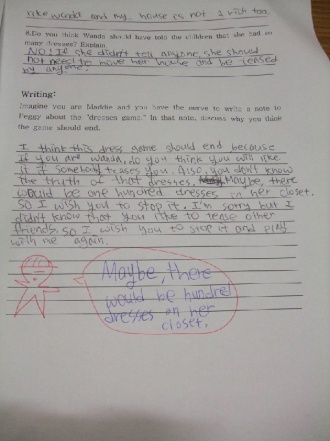 like wanda and my house is not 1 rich too.
8.Do you think Wanda should have told the children that she had so
many dresses? Explain.
NO! If she didn't tell anyone, she should
not need to move her house and be teased
by anyone.
Writing:
Imagine you are Maddie and you have the nerve to write a note to
Peggy about the "dresses game." In that note, discuss why you think
the game should end.
I think this dress game should end because
If you are wanda, do you think you will like
it if somebody teases you. Also, you don't know
the truth of that dresses. Maybe there
would be one hundred dresses in her closet.
So I wish you to stop it, I'm sorry but I
didn't know that you like to tense other
friends. So I wish you to stop it and play
with me again.
Maybe, there
would be hundred
dresses on her
closet.